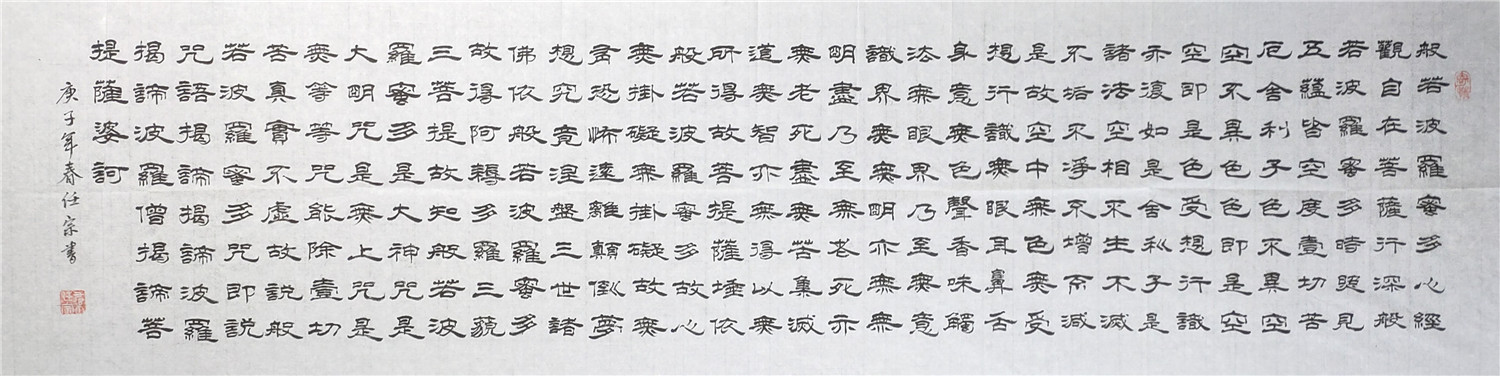 般若波羅蜜多心經
觀自在菩薩行深般
若波羅蜜多時照見
五蘊皆空度壹切苦
厄舍利子色不異空
空不異色色即是空
空即是色受想行識
亦復如是舍利子是
諸法空相不生不滅
不垢不淨不增不減
是故空中無色無受
想行識無眼耳鼻舌
身意無色聲香味觸
法無眼界乃至無意
識界無無明亦無無
明盡乃至無老死亦
無老死盡無苦集滅
道無智亦無得以無
所得故菩提薩埵依
般若波羅蜜多故心
無掛礙無掛礙故無
有恐怖遠離顛倒夢
想究竟涅盤三世諸
佛依般若波羅蜜多
故得阿耨多羅三藐
三菩提故知般若波
羅蜜多是大神咒是
大明咒是無上咒是
無等等咒能除壹切
苦真實不虛故說般
若波羅蜜多咒即說
咒語揭諦揭諦波羅
揭諦波羅僧揭諦菩
提薩婆訶
庚子年春任宗書